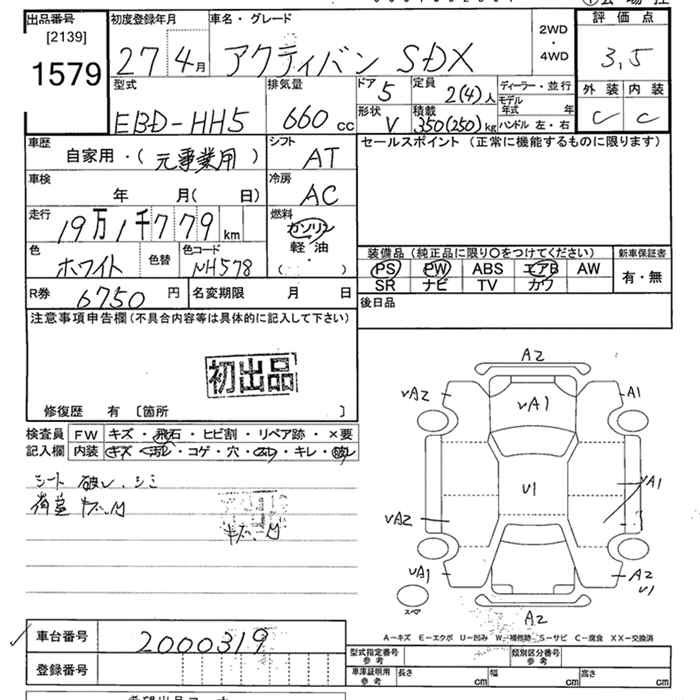 出品番号
[2139]
1579
初度登録年月
27 4月
車名・グレード
アクティバン SDX
2WD
・
4WD
評価点
3,5
外装 内装
C C
型式
EBD-HH5
排気量
660 cc
ドア 5
定員 2(4)人
形状 V
積載 350(250)kg
ディーラー・並行
モデル年式 年
ハンドル 左・右
車歴
自家用・(元事業用)
シフト
AT
セールスポイント (正常に機能するものに限ります)
車検
年 月( 日)
冷房
AC
走行
19万1千779km
燃料
ガソリン
軽・油
・
( )
色
ホワイト
色替
色コード
NH578
装備品 (純正品に限り○をつけてください)
新車保証書
PS PW ABS エアB AW
有・無
SR ナビ TV カワ
R券 6750円
名変期限 月 日
後日品
注意事項申告欄(不具合内容等は具体的に記入して下さい)
初出品
修復歴 有 [箇所 ]
検査員
記入欄
FW キズ・飛石・ヒビ割・リペア跡・×要
内装 キズ・汚レ・コゲ・穴・スレ・キレ・破レ
シート 破レ.シミ
荷室 キズ.凹
キズ.凹
A2
VA2
VA1
A1
U1
VA1
VA2
VA1
A2
V1
スペア
A2
A−キズ E−エクボ U−凹み W−補修跡 S−サビ C−腐食 XX−交換済
車台番号
2000319
登録番号
型式指定番号
参考
類別区分番号
参考
車庫証明用
参考
長さ cm
幅 cm
高さ cm